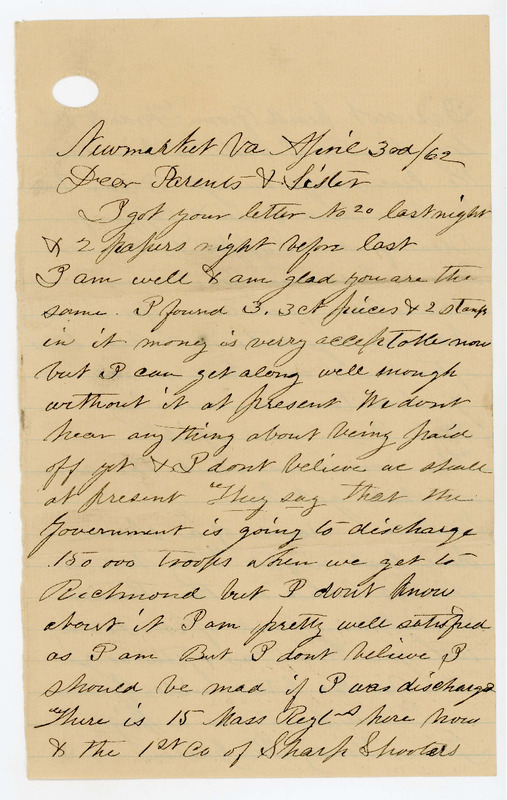 Newmarket Va April 3rd/62
Dear Parents & Sister
I got your letter No 20 last night
& 2 papers night before last
I am well & am glad you are the
same. I found 3. 3 ct pieces & 2 stamps
in it money is verry acceptable now
but I can get along well enough
without it at present We dont
hear any thing about being paid
off yet & I dont believe we shall
at present They say that the
Government is going to discharge
150 000 troops when we get to
Richmond but I dont know
about it I am pretty well satisfied
as I am But I dont believe I
should be mad if I was discharged
There is 15 Mass Regts here now
& the 1st Co of Sharp Shooters